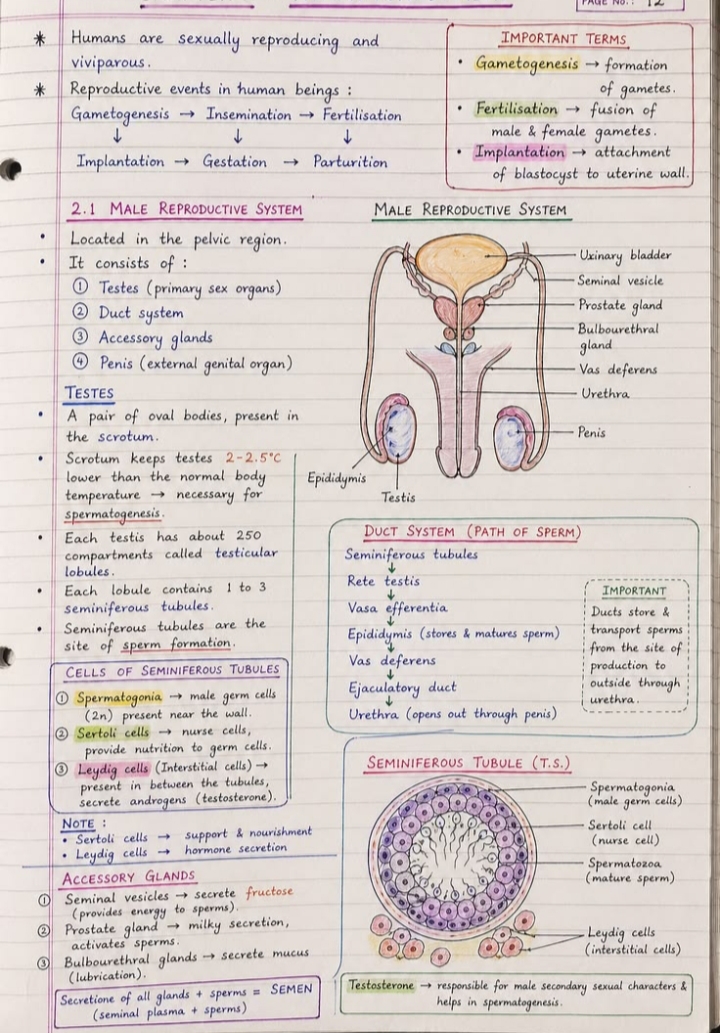 PAGE NO.: 12
* Humans are sexually reproducing and
viviparous.
* Reproductive events in human beings :
Gametogenesis → Insemination → Fertilisation
↓ ↓ ↓
Implantation → Gestation → Parturition
IMPORTANT TERMS
• Gametogenesis → formation
of gametes.
• Fertilisation → fusion of
male & female gametes.
• Implantation → attachment
of blastocyst to uterine wall.
2.1 MALE REPRODUCTIVE SYSTEM
• Located in the pelvic region.
• It consists of :
① Testes (primary sex organs)
② Duct system
③ Accessory glands
④ Penis (external genital organ)
TESTES
• A pair of oval bodies, present in
the scrotum.
• Scrotum keeps testes 2-2.5°C
lower than the normal body
temperature → necessary for
spermatogenesis.
• Each testis has about 250
compartments called testicular
lobules.
• Each lobule contains 1 to 3
seminiferous tubules.
• Seminiferous tubules are the
site of sperm formation.
CELLS OF SEMINIFEROUS TUBULES
① Spermatogonia → male germ cells
(2n) present near the wall.
② Sertoli cells → nurse cells,
provide nutrition to germ cells.
③ Leydig cells (Interstitial cells) →
present in between the tubules,
secrete androgens (testosterone).
NOTE :
• Sertoli cells → support & nourishment
• Leydig cells → hormone secretion
ACCESSORY GLANDS
① Seminal vesicles → secrete fructose
(provides energy to sperms).
② Prostate gland → milky secretion,
activates sperms.
③ Bulbourethral glands → secrete mucus
(lubrication).
Secretione of all glands + sperms = SEMEN
(seminal plasma + sperms)
MALE REPRODUCTIVE SYSTEM
Urinary bladder
Seminal vesicle
Prostate gland
Bulbourethral
gland
Vas deferens
Urethra
Penis
Epididymis
Testis
DUCT SYSTEM (PATH OF SPERM)
Seminiferous tubules
↓
Rete testis
↓
Vasa efferentia
↓
Epididymis (stores & matures sperm)
↓
Vas deferens
↓
Ejaculatory duct
↓
Urethra (opens out through penis)
IMPORTANT
Ducts store &
transport sperms
from the site of
production to
outside through
urethra.
SEMINIFEROUS TUBULE (T.S.)
Spermatogonia
(male germ cells)
Sertoli cell
(nurse cell)
Spermatozoa
(mature sperm)
Leydig cells
(interstitial cells)
Testosterone → responsible for male secondary sexual characters &
helps in spermatogenesis.